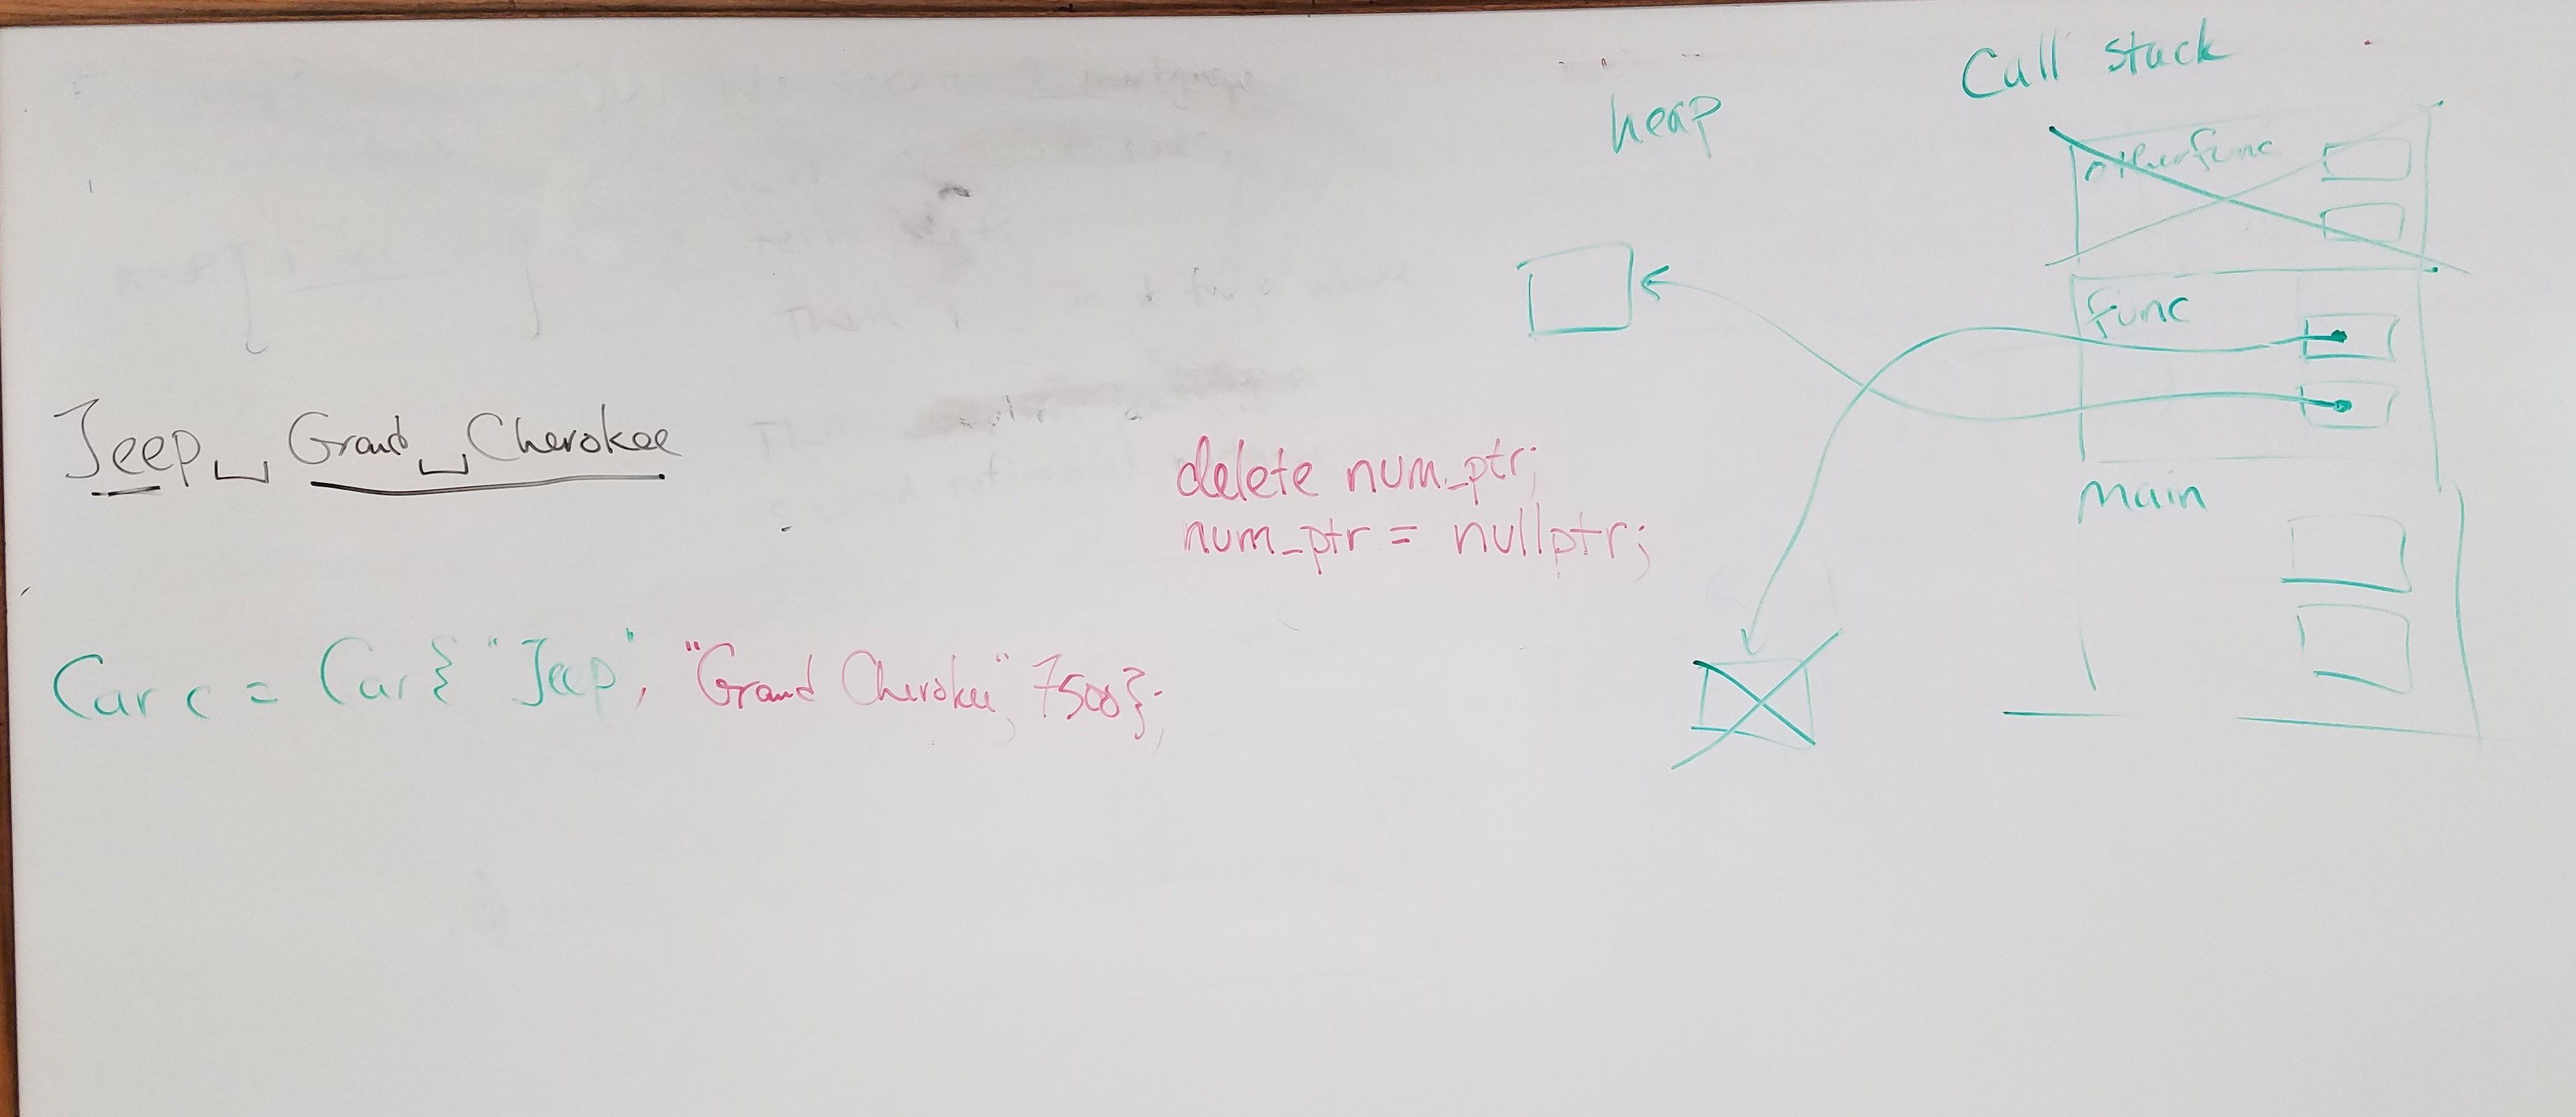 Call stack
heap
otherfunc
func
Jeep␣Grand␣Cherokee
delete num_ptr;
num_ptr = nullptr;
main
Car c = Car{"Jeep", "Grand Cherokee", 7500};